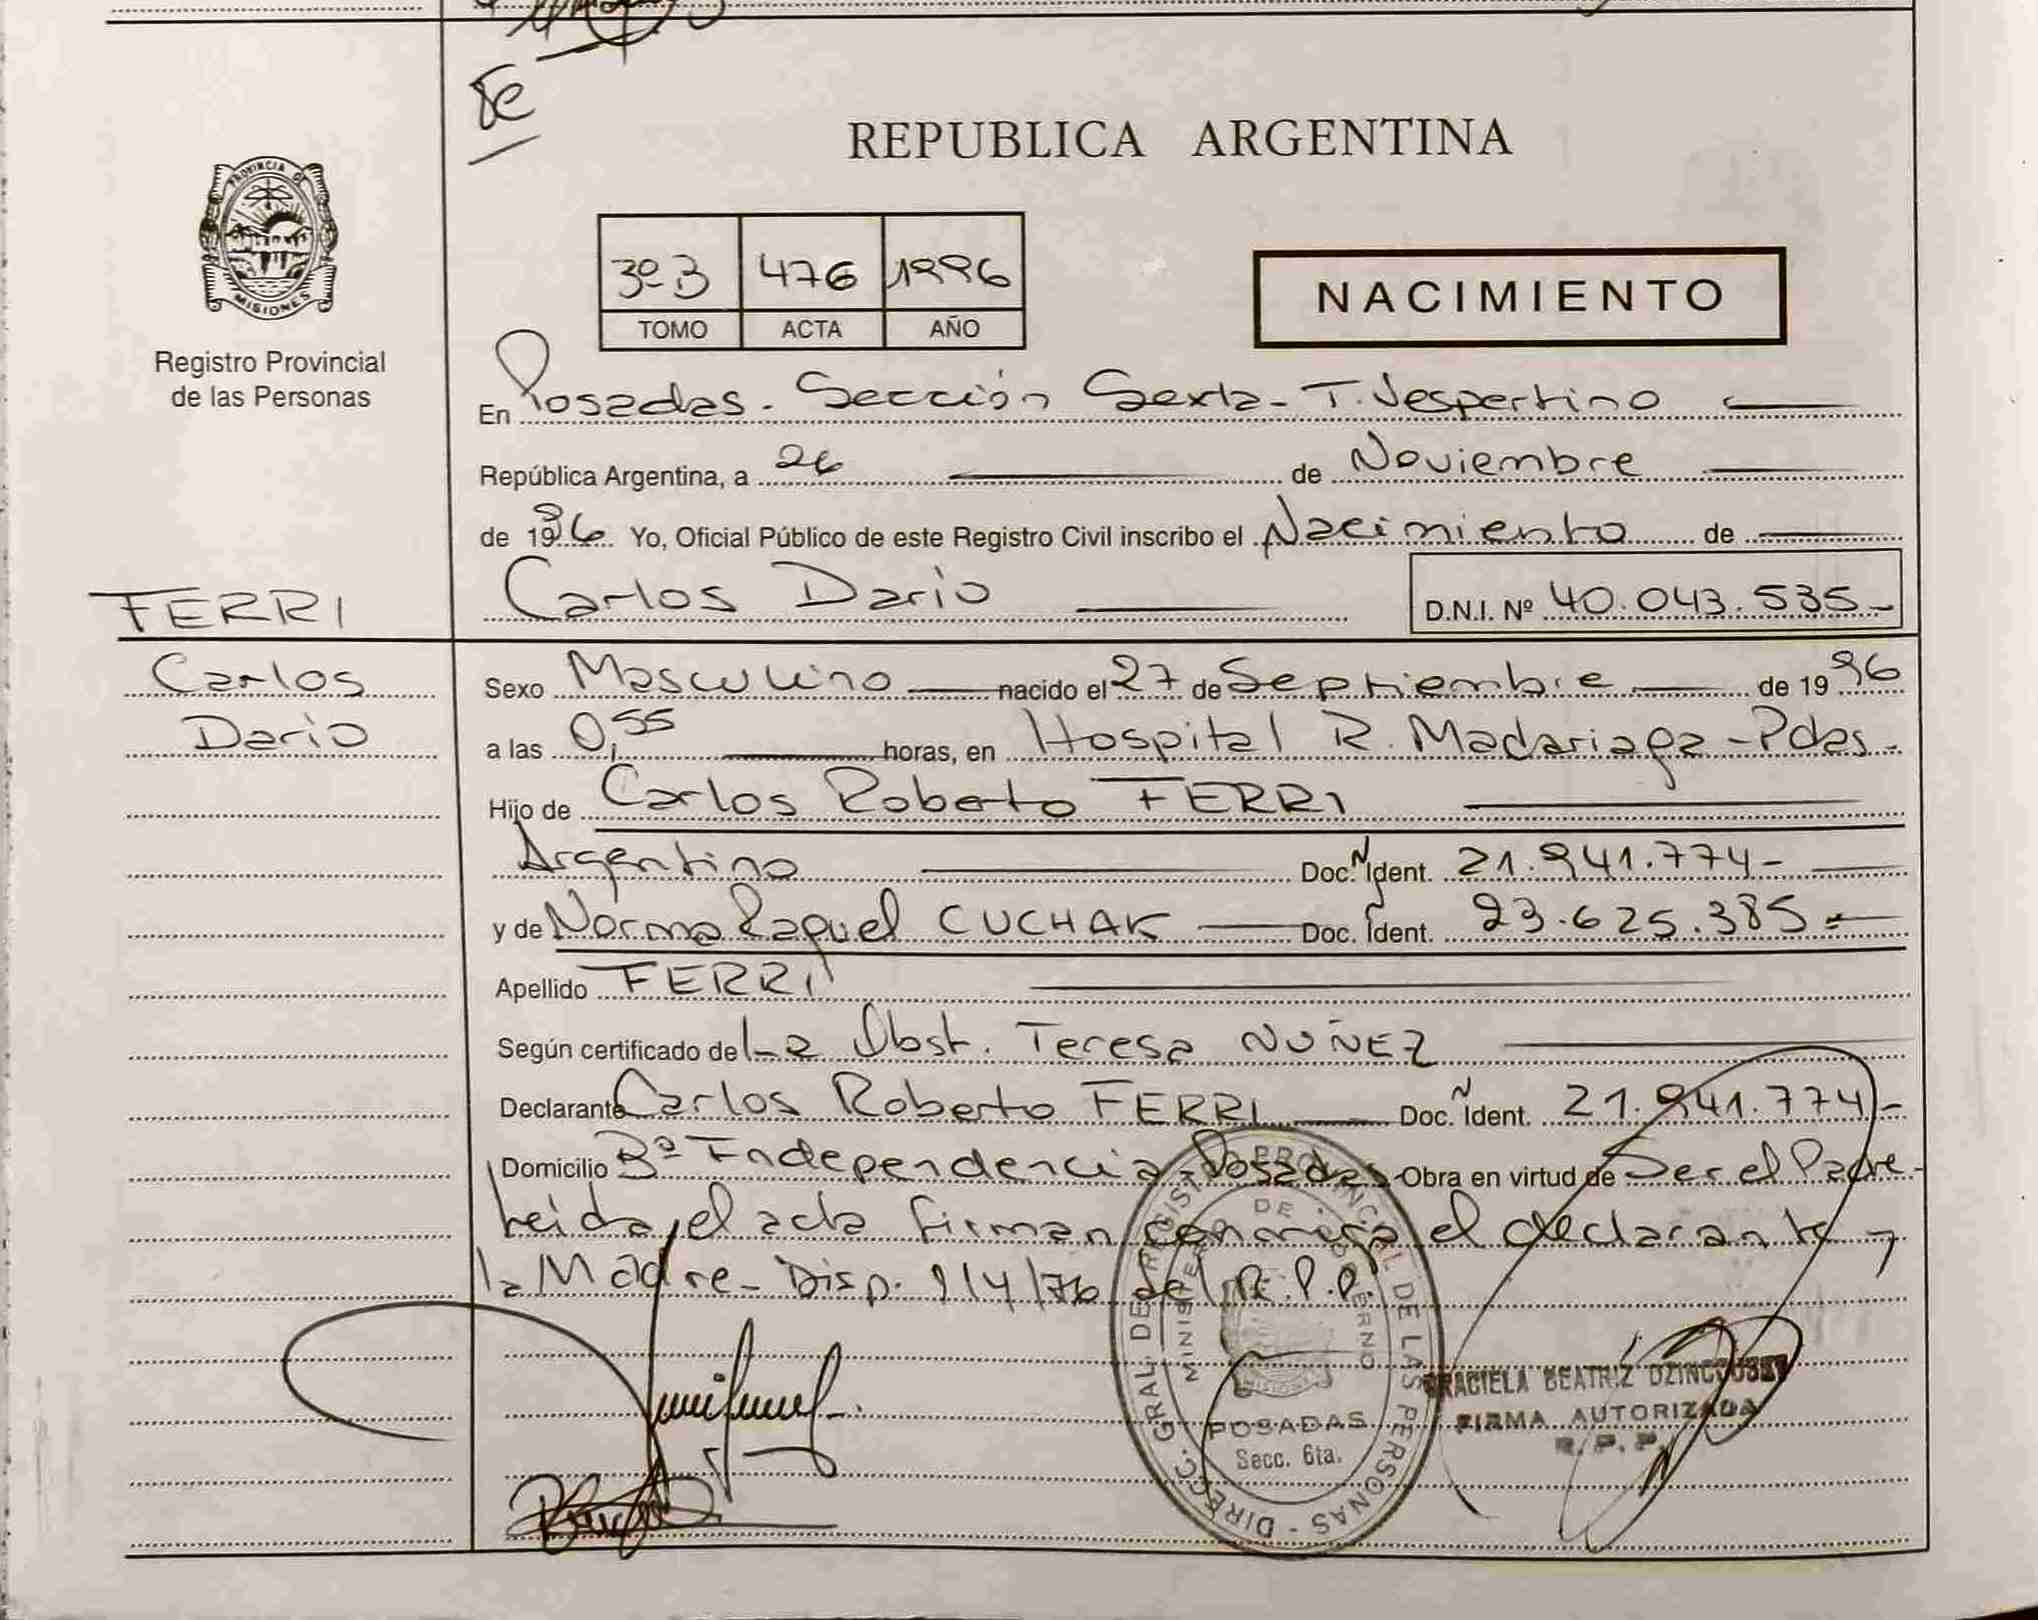 REPUBLICA ARGENTINA
PROVINCIA DE
MISIONES
Registro Provincial
de las Personas
3º B 476 1996
TOMO ACTA AÑO
NACIMIENTO
En Posadas - Sección Sexta - T. Vespertino
República Argentina, a 26 de Noviembre
de 1996 Yo, Oficial Público de este Registro Civil inscribo el Nacimiento de
FERRI
Carlos Dario
Carlos Dario D.N.I. Nº 40.043.535-
Sexo Masculino nacido el 27 de Septiembre de 1996
a las 0,55 horas, en Hospital R. Madariaga - Pdas -
Hijo de Carlos Roberto FERRI
Argentino Doc. Ident. 21.941.774-
y de Norma Raquel CUCHAK Doc. Ident. 23.625.385-
Apellido FERRI
Según certificado de La Obst. Teresa NUÑEZ
Declarante Carlos Roberto FERRI Doc. Ident. 21.941.774-
Domicilio Bº Independencia - Posadas - Obra en virtud de Ser el Padre -
Leida el acta firman conmigo el declarante y
la Madre - Disp. 914/76 del R.P.P.
DIRECC. GRAL. DE REGISTRO PROVINCIAL DE LAS PERSONAS -
MINISTERIO DE GOBIERNO
POSADAS
Secc. 6ta.
GRACIELA BEATRIZ
FIRMA AUTORIZADA
R.P.P.